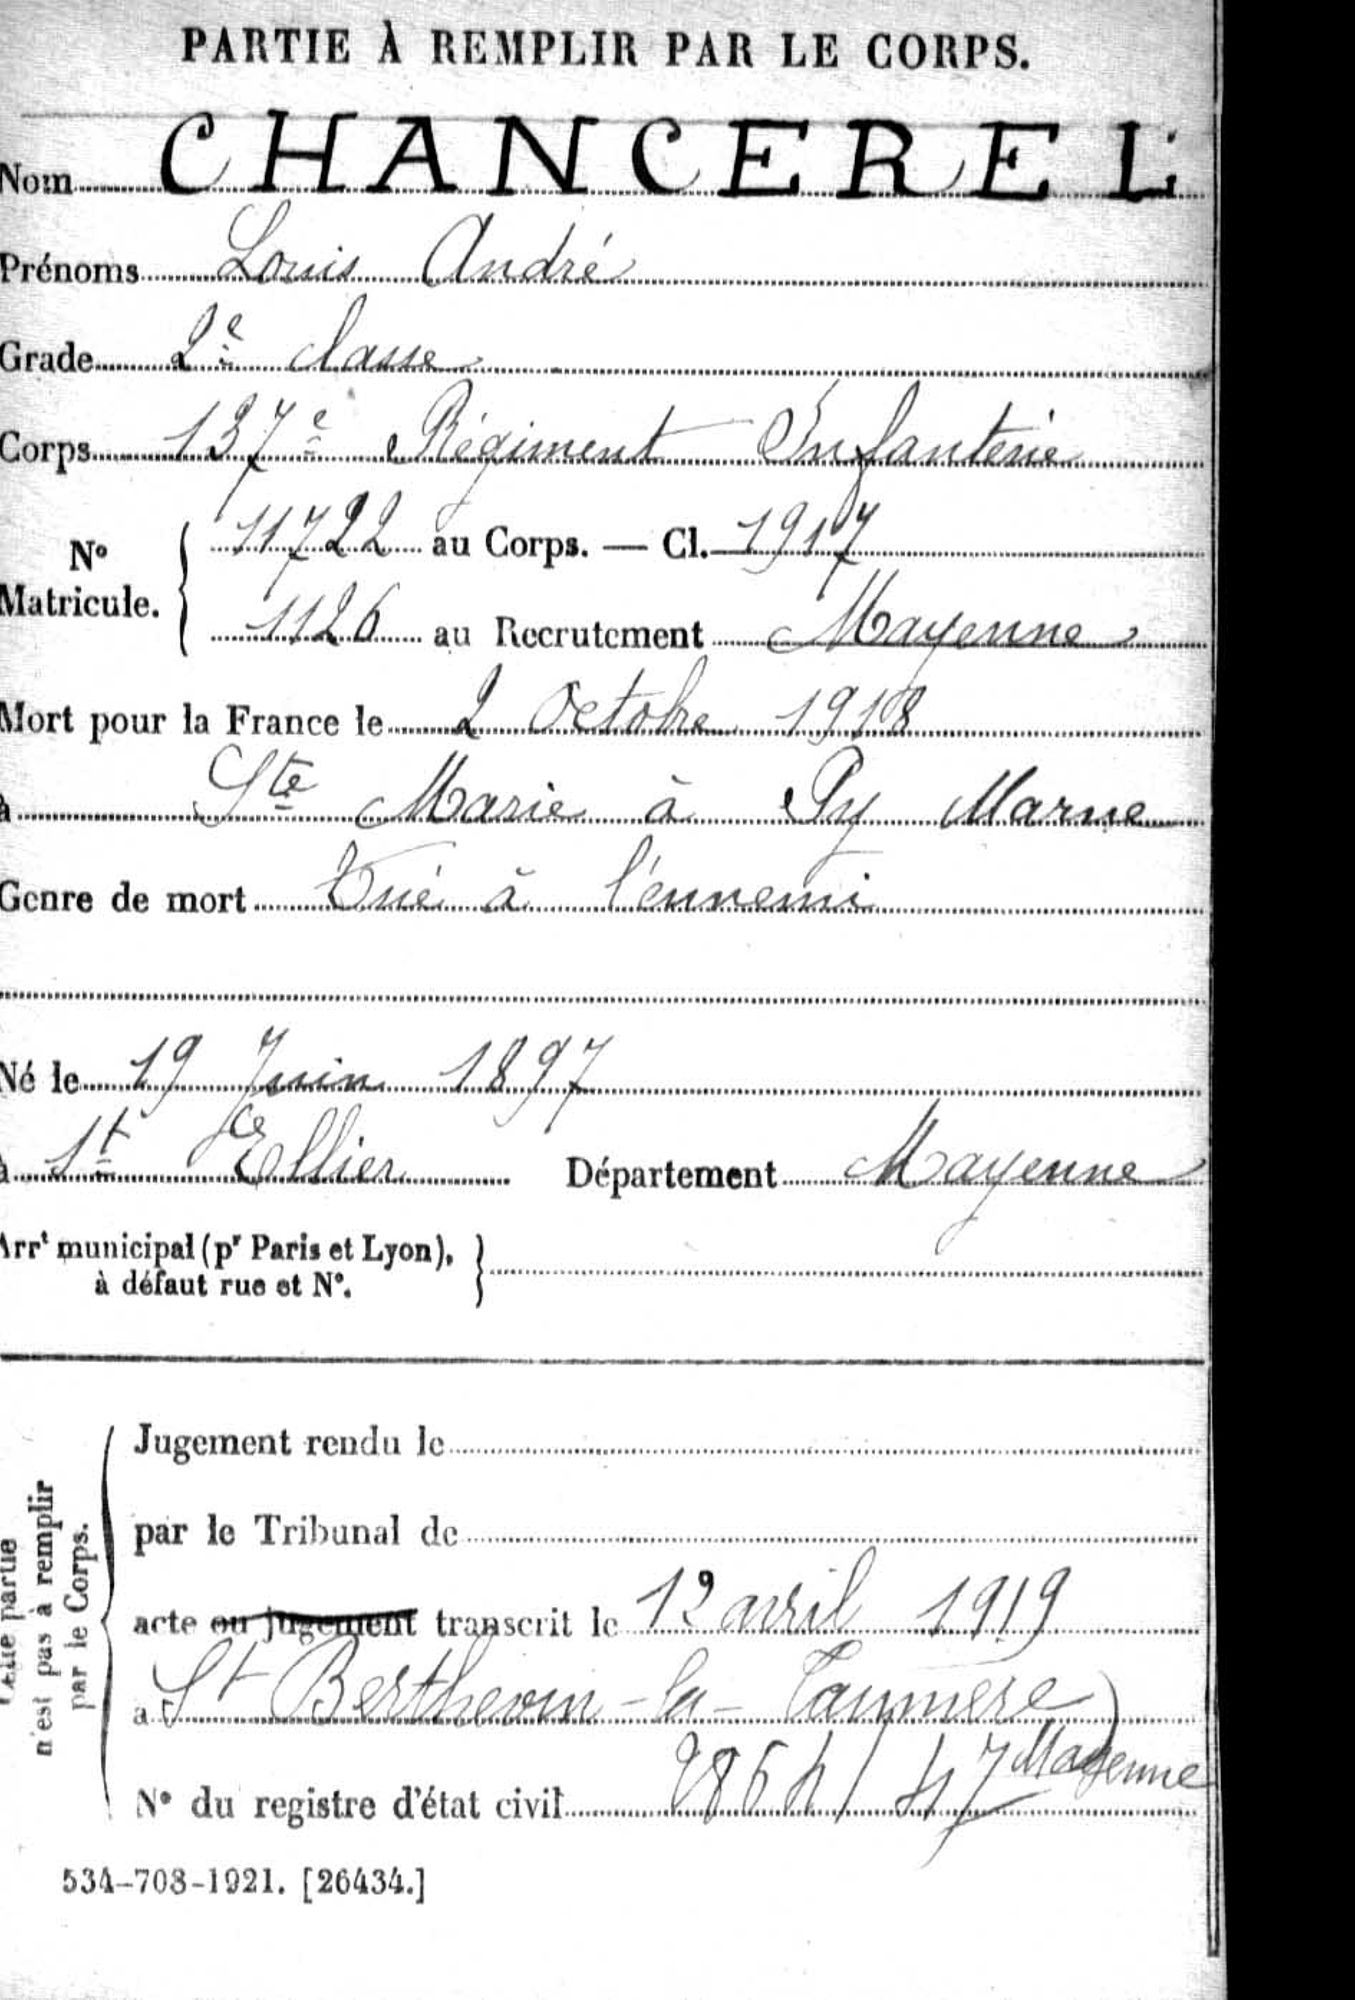 PARTIE À REMPLIR PAR LE CORPS.
Nom CHANCEREL
Prénoms Louis André
Grade 2e classe
Corps 137e Régiment Infanterie
No Matricule. { 11722 au Corps. — Cl. 1917
1126 au Recrutement Mayenne
Mort pour la France le 2 Octobre 1918
à Ste Marie à Py Marne
Genre de mort Tué à l'ennemi
Né le 19 Juin 1897
à St Ellier Département Mayenne
Arrt municipal (pr Paris et Lyon), }
à défaut rue et No.
Cette partie
n'est pas à remplir
par le Corps.
Jugement rendu le
par le Tribunal de
acte ou jugement transcrit le 12 avril 1919
a St Berthevin-la-Tannière
Mayenne
No du registre d'état civil
534-708-1921. [26434.]